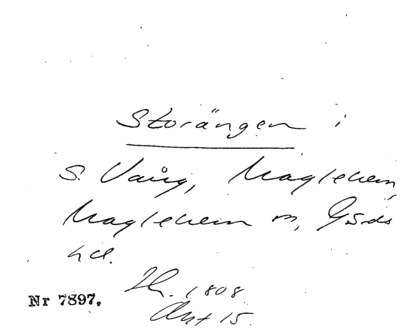 Storängen i
S. Vång, Maglehem,
Maglehem sn, Gärds
hd.
1808
Akt 15.
Nr 7897.